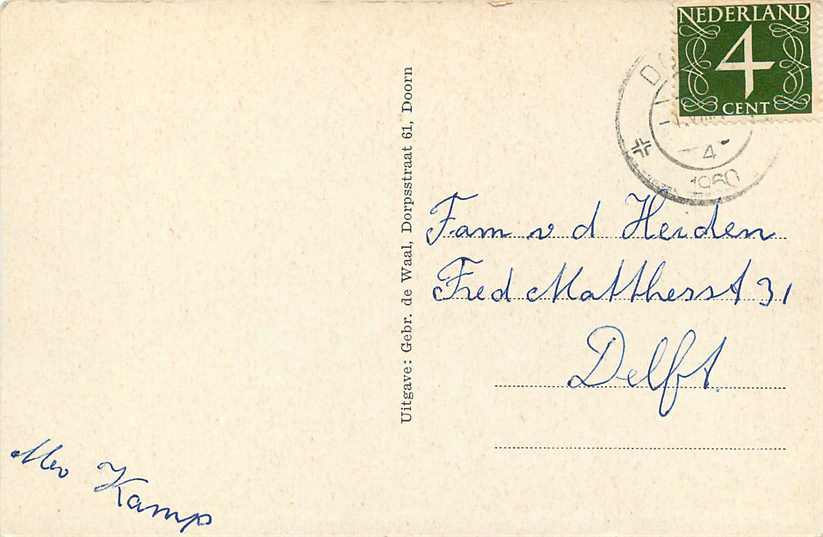 NEDERLAND
4
CENT
4
1960
Uitgave: Gebr. de Waal, Dorpsstraat 61, Doorn
Fam v d Heiden
Fred Mattherst 31
Delft
Mev Kamp